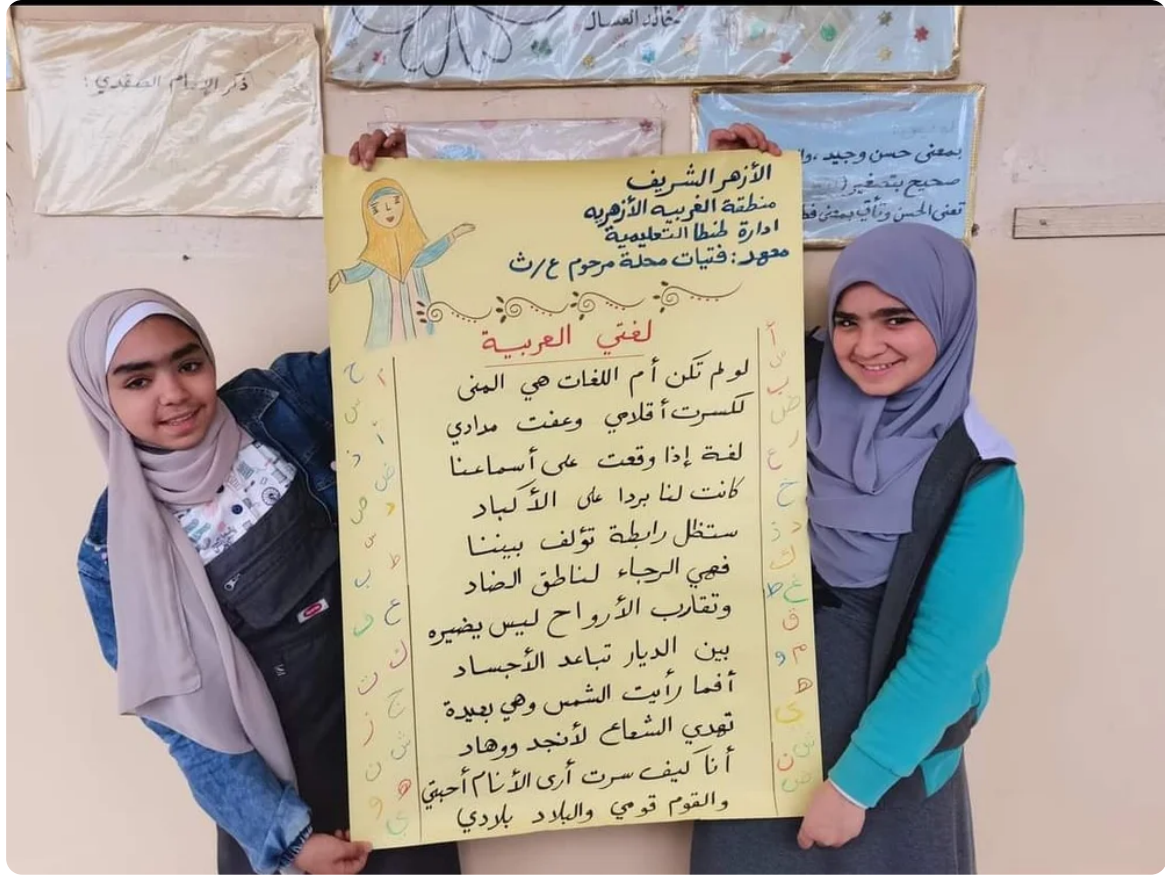 خالد العسال
ذكر الإمام الصفدي :
بمعنى حسن وجيد ،
صحيح بتصغير
تعني الحسن وتأتي بمعنى
الأزهر الشريف
منطقة الغربيه الأزهريه
ادارة طنطا التعليمية
معهد : فتيات محلة مرحوم ع/ث
لغتي العربية
لو لم تكن أم اللغات هي المنى
لكسرت أقلامي وعفت مدادي
لغة إذا وقعت على أسماعنا
كانت لنا بردا على الأكباد
ستظل رابطة تؤلف بيننا
فهي الرجاء لناطق الضاد
وتقارب الأرواح ليس يضيره
بين الديار تباعد الأجساد
أفما رأيت الشمس وهي بعيدة
تهدي الشعاع لأنجد ووهاد
أنا كيف سرت أرى الأنام أحبتي
والقوم قومي والبلاد بلادي